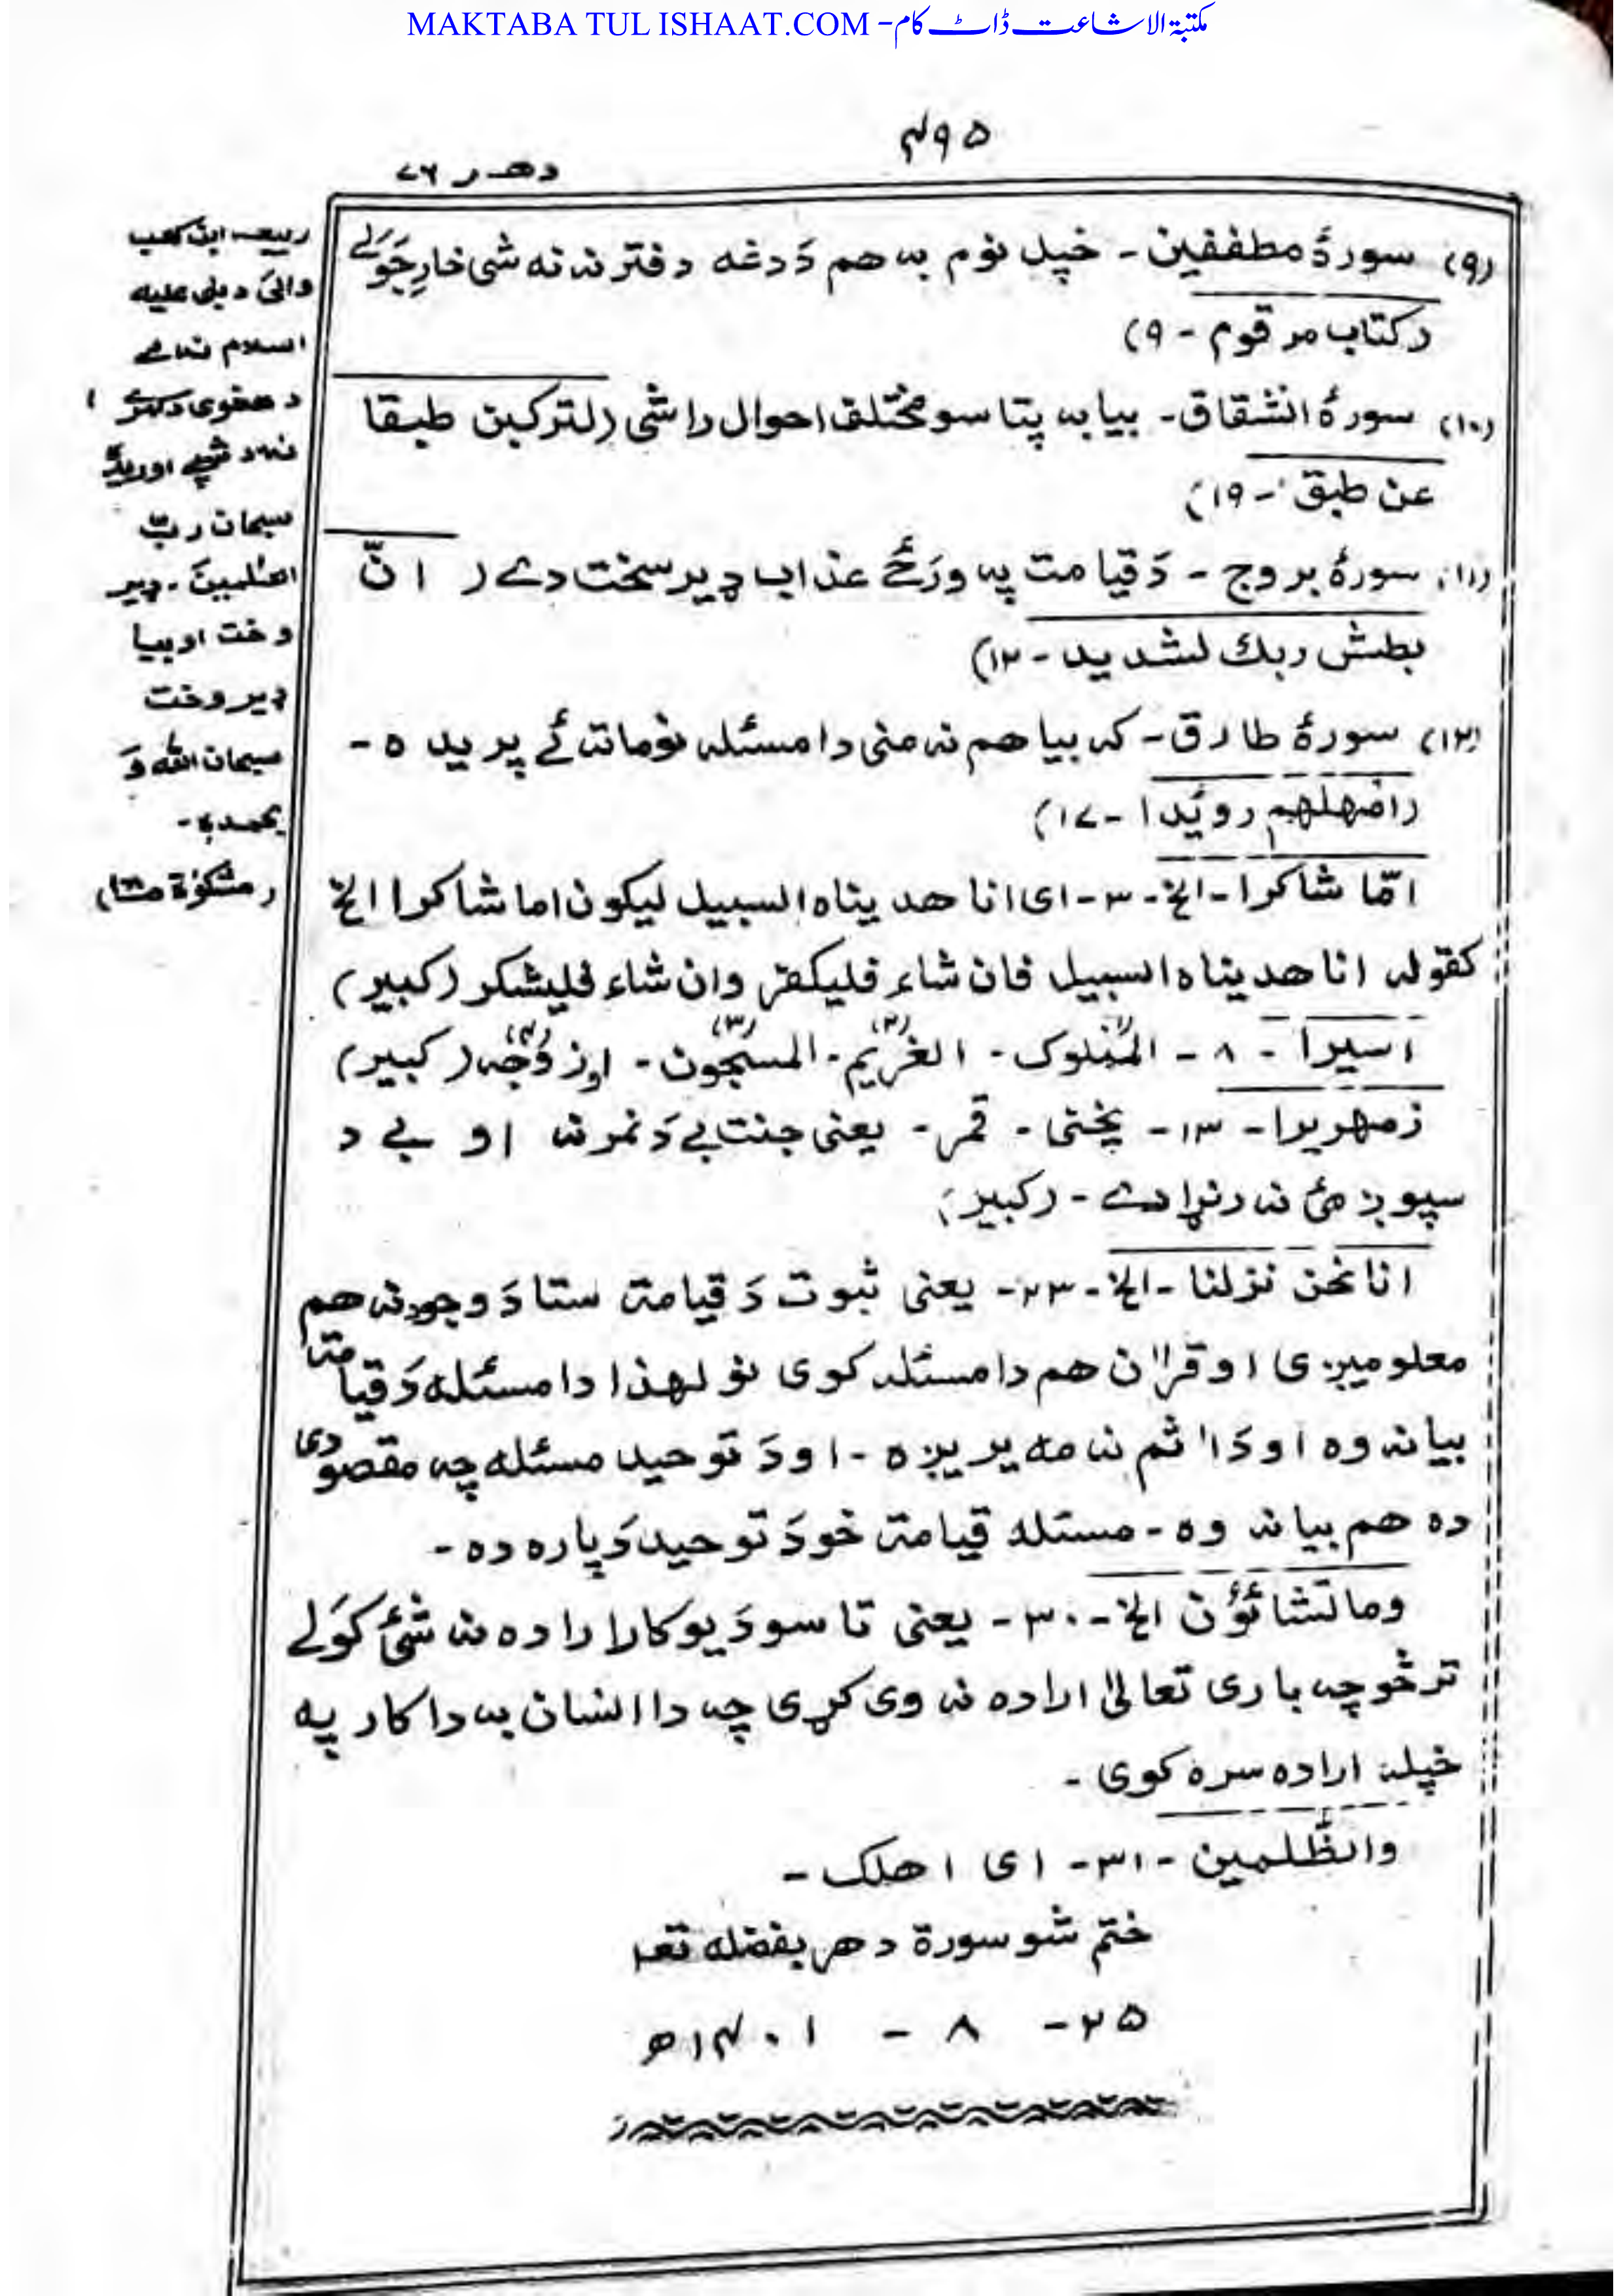 MAKTABA TUL ISHAAT.COM - مکتبۃ الاشاعت ڈاٹ کام
۴۹۵
دهـر ۷۶
(۹) سورۀ مطففين - خپل نوم به هم دَ دغه دفتر نه نه شی خارِجَولے
(کتاب مرقوم - ۹)
(۱۰) سورۀ انشقاق - بیا به پتا سو مختلف احوال راشی (لترکبن طبقا
عن طبق - ۱۹)
(۱۱) سورۀ بروج - دَ قیامت په ورځے عذاب ډیر سخت دے ( انّ
بطش ربك لشدید - ۱۲)
(۱۲) سورۀ طارق - که بیا هم نه منی دا مسئله نو ماته ئے پریږده -
(امهلهم رویدا - ۱۷)
امّا شاکرا - الخ - ۳ - ای انا هدیناه السبیل لیکون اما شاکرا الخ
کقوله انا هدیناه السبیل فان شاء فلیکفر وان شاء فلیشکر (کبیر)
اسیرا - ۸ - المملوک(۱) - الغریم(۲) - المسجون(۳) - او زوجه(۴) (کبیر)
زمهریرا - ۱۳ - یخنی - قمر - یعنی جنت بے دَ نمر نه او بے د
سپوږمئ نه رنړا دے - (کبیر)
انا نحن نزلنا - الخ - ۲۳ - یعنی ثبوت دَ قیامت ستا دَ وجود نه هم
معلومیږی او قرآن هم دا مسئله کوی نو لهذا دا مسئله دَ قیامت
بیانه وه او دَ اثم نه مه یریږه - او دَ توحید مسئله چه مقصودی
ده هم بیانه وه - مسئله قیامت خو دَ توحید دَ پاره ده -
وما تشائؤن الخ - ۳۰ - یعنی تاسو دَ یو کار اراده نه شئ کَولے
تر څو چه باری تعالیٰ اراده نه وی کړی چه دا انسان به دا کار په
خپله اراده سره کوی -
والظّٰلمین - ۳۱ - ای اهلک -
ختم شو سورة دهر بفضله تعا
۲۵ - ۸ - ۱۴۰۱ھ
ربیعه ابن کعب
وائی د نبی علیه
السلام نه مے
د هغوی د
نه د شپے اورید
سبحان ربّ
العٰلمین - ډیر
وخت او بیا
ډیر وخت
سبحان الله وَ
بحمده -
(مشکوٰة